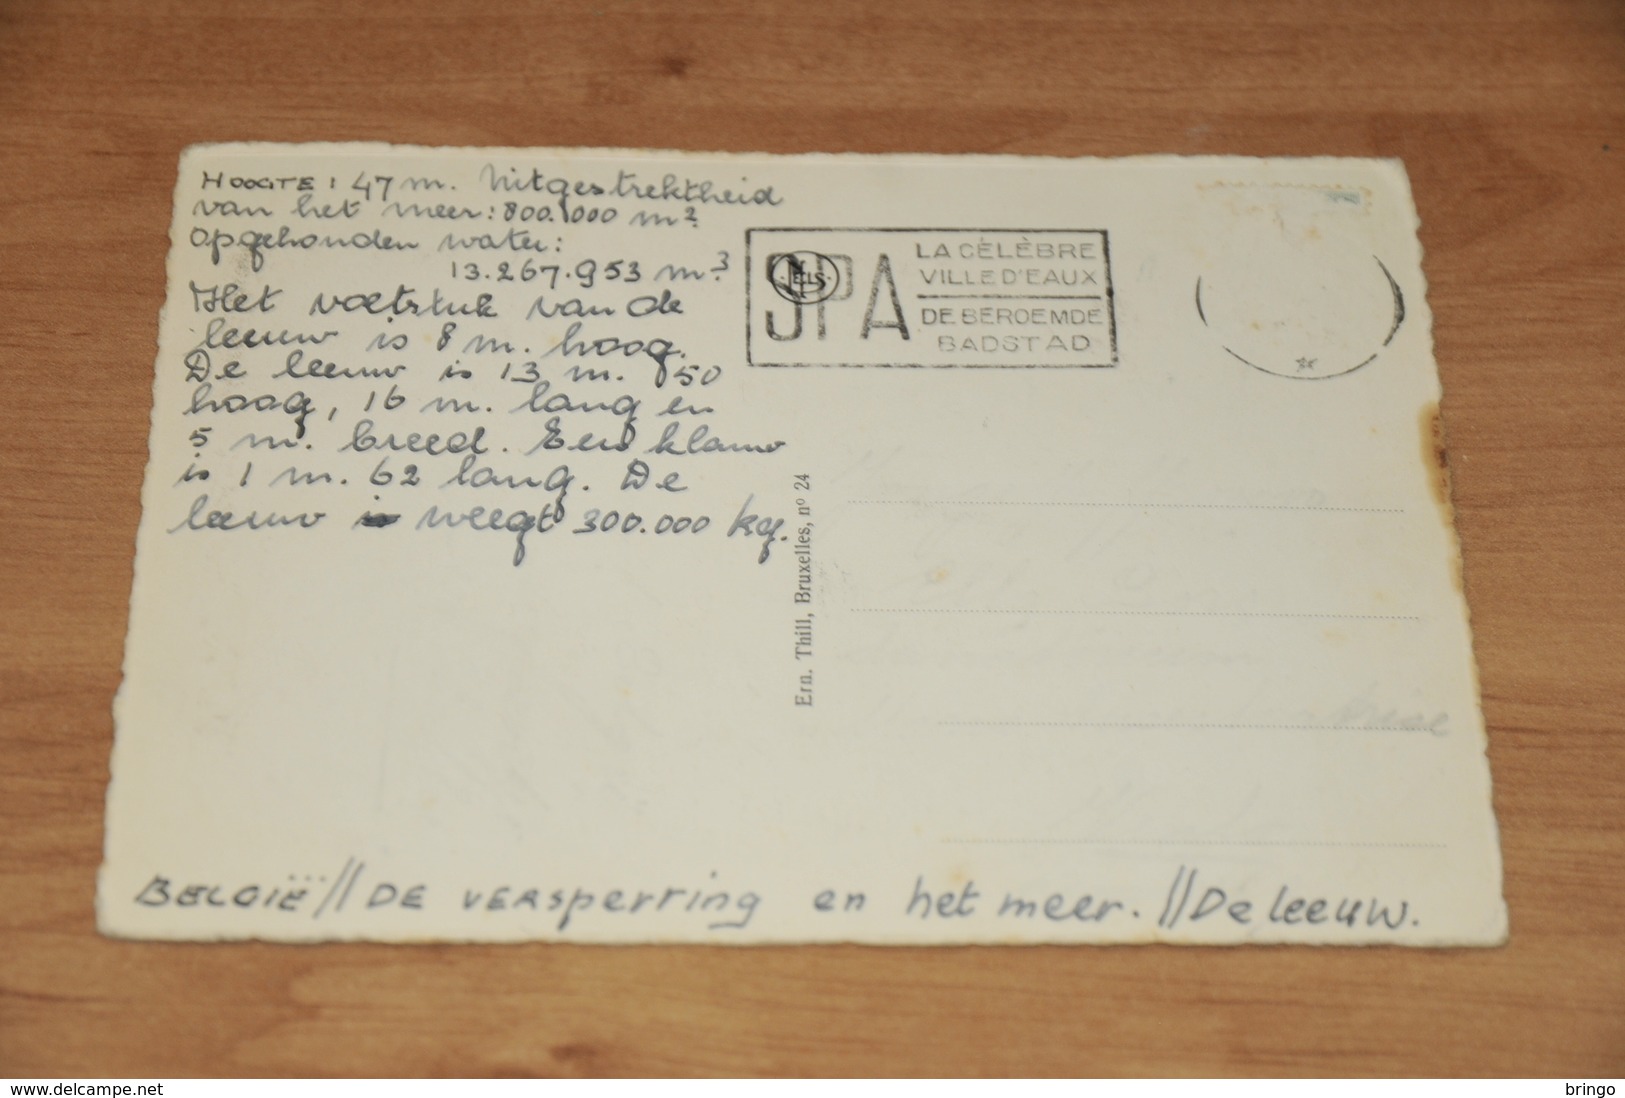 HOOGTE: 47 m. Uitgestrektheid
van het meer: 800.000 m²
Opgehouden water:
13.267.953 m³
Het voetstuk van de
leeuw is 8 m. hoog.
De leeuw is 13 m. 50
hoog, 16 m. lang en
5 m. breed. Een klauw
is 1 m. 62 lang. De
leeuw weegt 300.000 kg.
SPA
NELS
LA CÉLÈBRE
VILLE D'EAUX
DE BEROEMDE
BADSTAD
Ern. Thill, Bruxelles, nº 24
BELGIË // DE VERSPERRING en het meer. // De leeuw.
www.delcampe.net
bringo